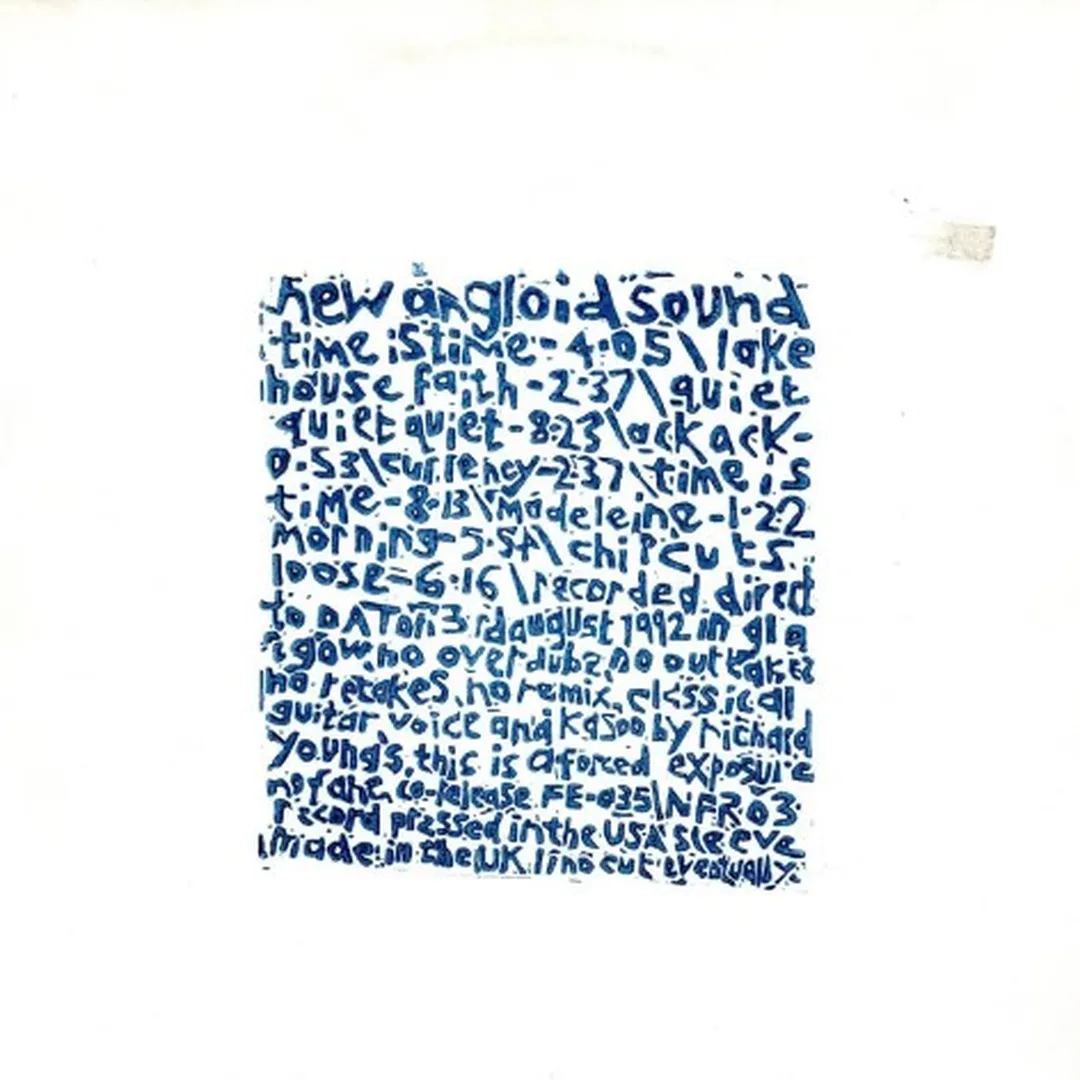 new angloid sound
time is time - 4·05 \ lake
house faith - 2·37 \ quiet
quiet quiet - 8·23 \ ack ack -
0·53 \ currency - 2·37 \ time is
time - 8·13 \ madeleine - 1·22
morning - 5·54 \ chip cuts
loose - 6·16 \ recorded direct
to DAT on 3rd august 1992 in gla
sgow, no overdubs, no outtakes
no retakes, no remix, classical
guitar voice and kazoo by richard
youngs, this is a forced exposure
no fans co-release FE-035\NFR03
record pressed in the USA sleeve
made in the UK lino cut eventually.